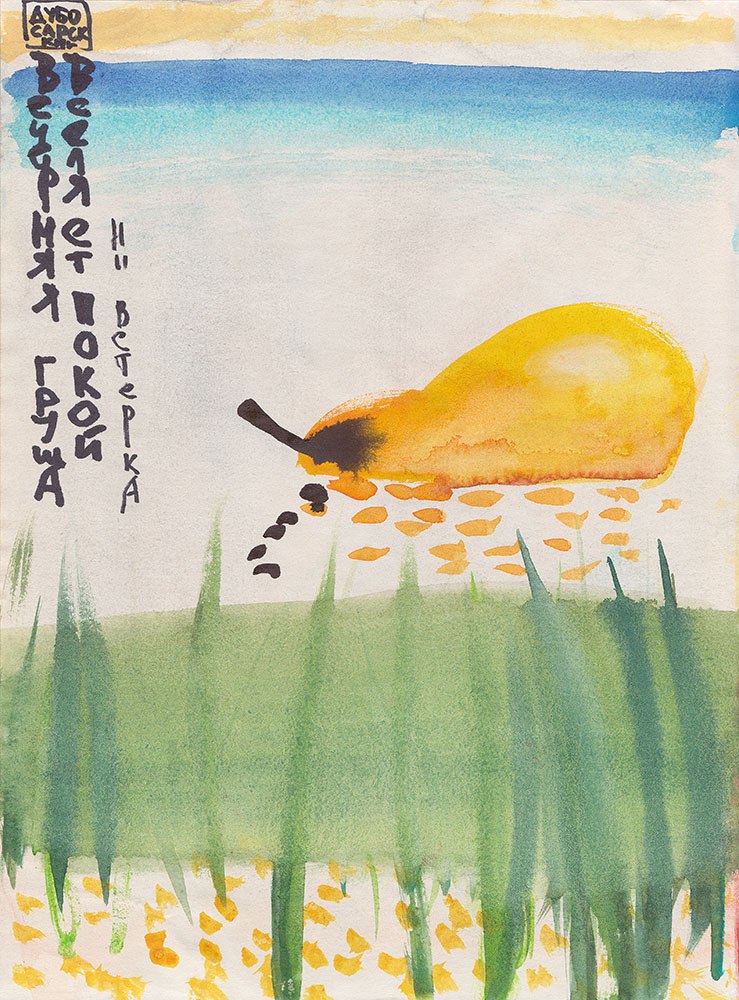 ДУБО
САРСК
КИЙ
Вечерняя груша
Вселяет покой
ни ветерка